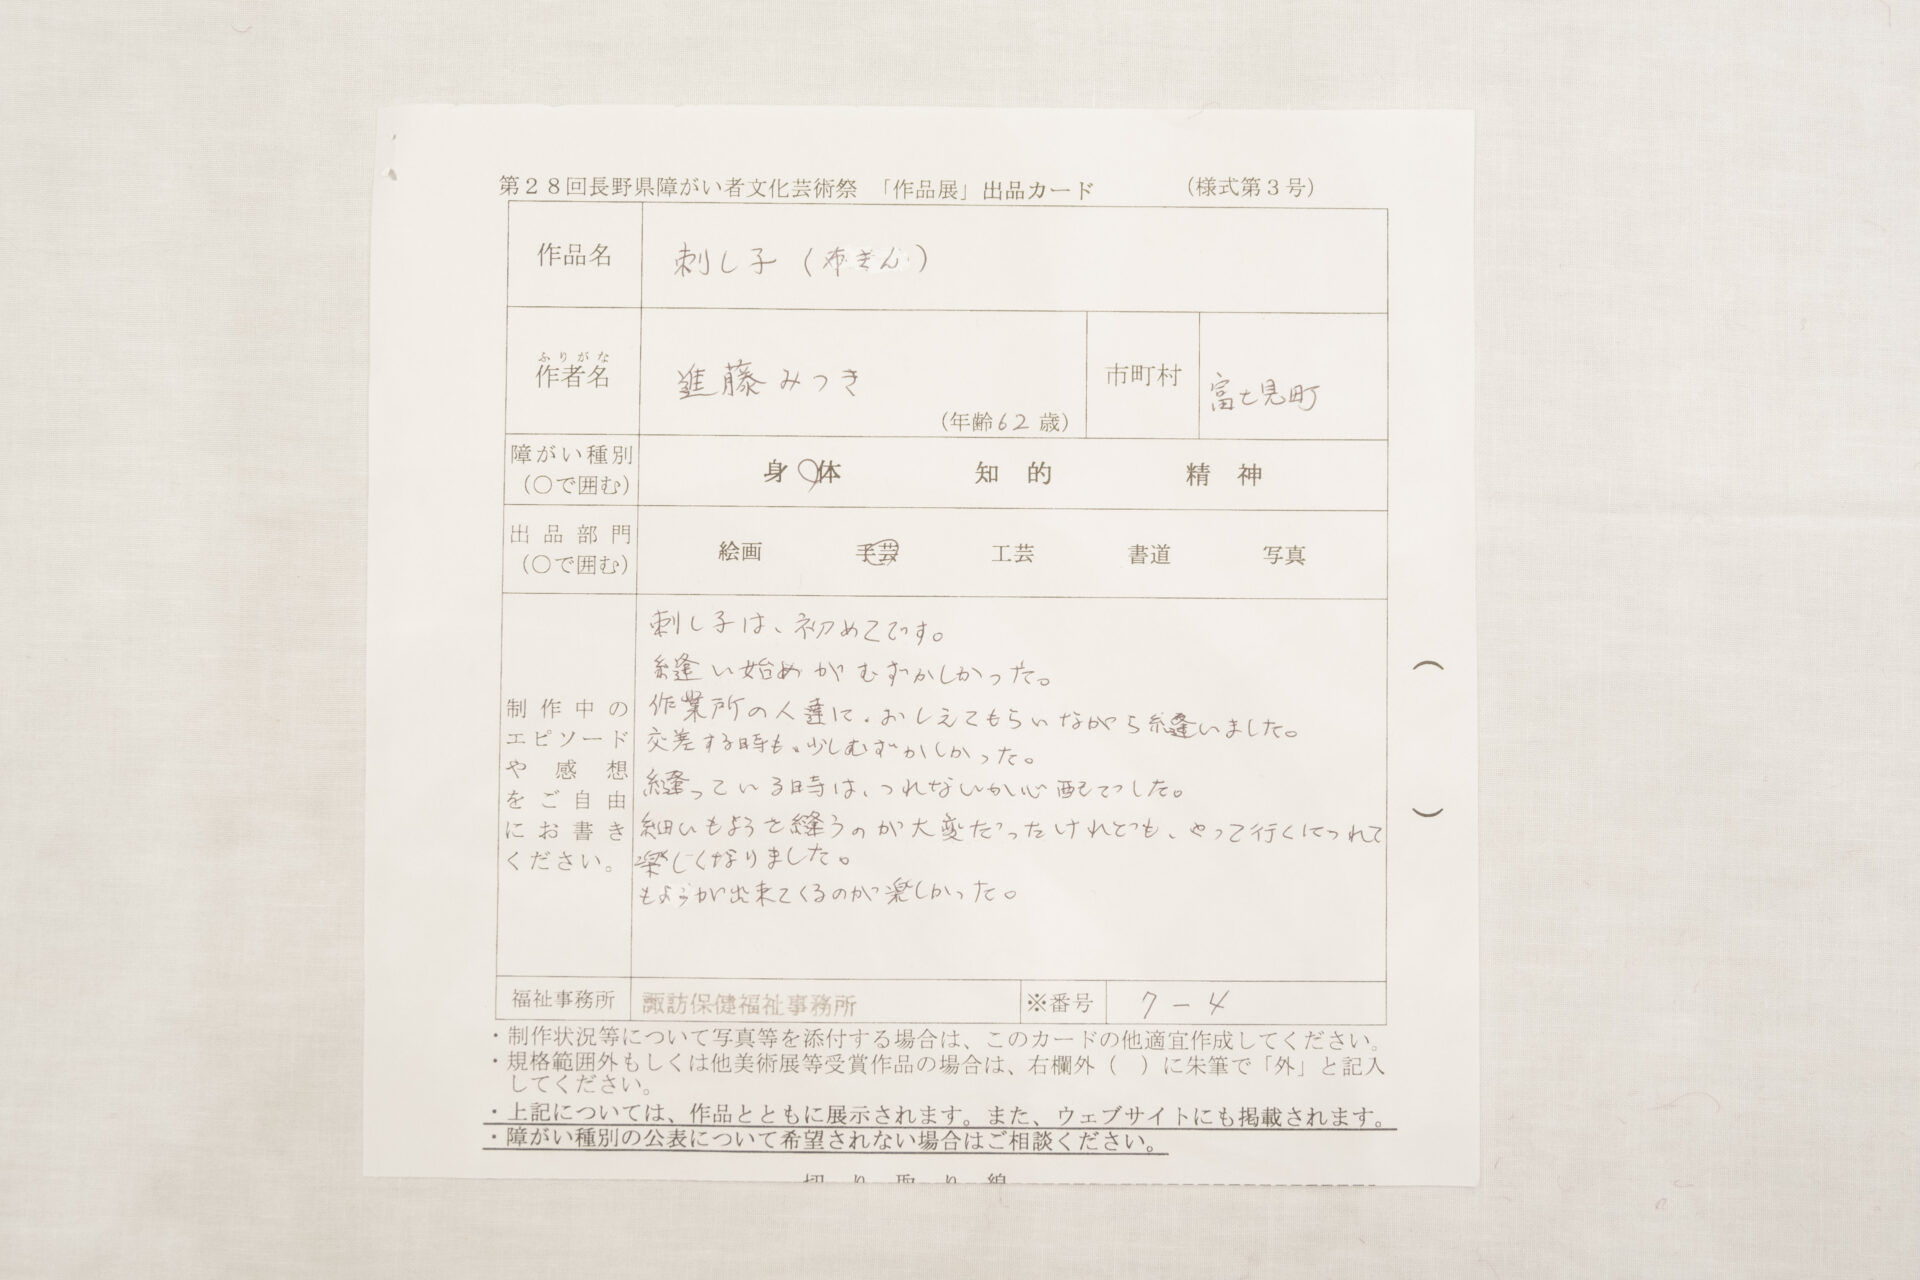 第28回長野県障がい者文化芸術祭 「作品展」出品カード (様式第3号)
作品名 刺し子(布きん)
ふりがな
作者名 進藤みつき (年齢62歳) 市町村 富士見町
障がい種別 (○で囲む) 身体 知的 精神
出品部門 (○で囲む) 絵画 手芸 工芸 書道 写真
制作中のエピソードや感想をご自由にお書きください。
刺し子は、初めてです。
縫い始めがむずかしかった。
作業所の人達に、おしえてもらいながら縫いました。
交差する時も、少しむずかしかった。
縫っている時は、つれないか心配でした。
細いもようを縫うのが大変だったけれども、やって行くにつれて
楽しくなりました。
もようが出来てくるのが楽しかった。
( )
福祉事務所 諏訪保健福祉事務所 ※番号 7-4
・制作状況等について写真等を添付する場合は、このカードの他適宜作成してください。
・規格範囲外もしくは他美術展等受賞作品の場合は、右欄外( )に朱筆で「外」と記入
してください。
・上記については、作品とともに展示されます。また、ウェブサイトにも掲載されます。
・障がい種別の公表について希望されない場合はご相談ください。
切り取り線